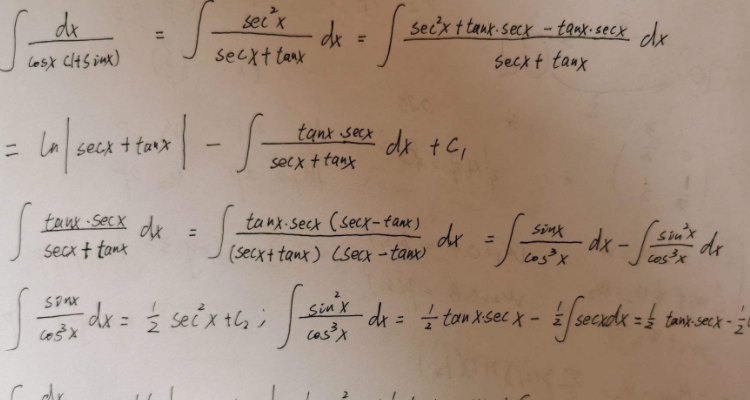 ∫ dx / (cosx (1+sinx)) = ∫ sec²x / (secx + tanx) dx = ∫ (sec²x + tanx·secx − tanx·secx) / (secx + tanx) dx
= ln|secx + tanx| − ∫ (tanx·secx) / (secx + tanx) dx + C₁
∫ (tanx·secx) / (secx + tanx) dx = ∫ (tanx·secx (secx − tanx)) / ((secx + tanx) (secx − tanx)) dx = ∫ sinx / cos³x dx − ∫ sin²x / cos³x dx
∫ sinx / cos³x dx = ½ sec²x + C₂ ; ∫ sin²x / cos³x dx = ½ tanx·secx − ½ ∫ secxdx = ½ tanx·secx − ½
∫ dx